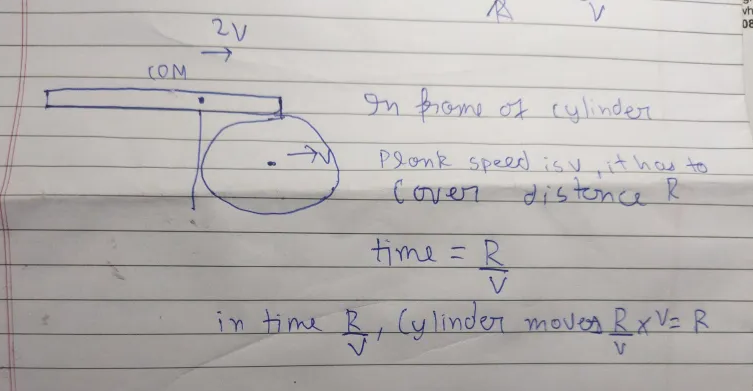 R V
vh
08
2V
COM
In frome of cylinder
→V
Plonk speed is V, it has to
Cover distonce R
time = R/V
in time R/V, Cylinder moves R/V x V = R